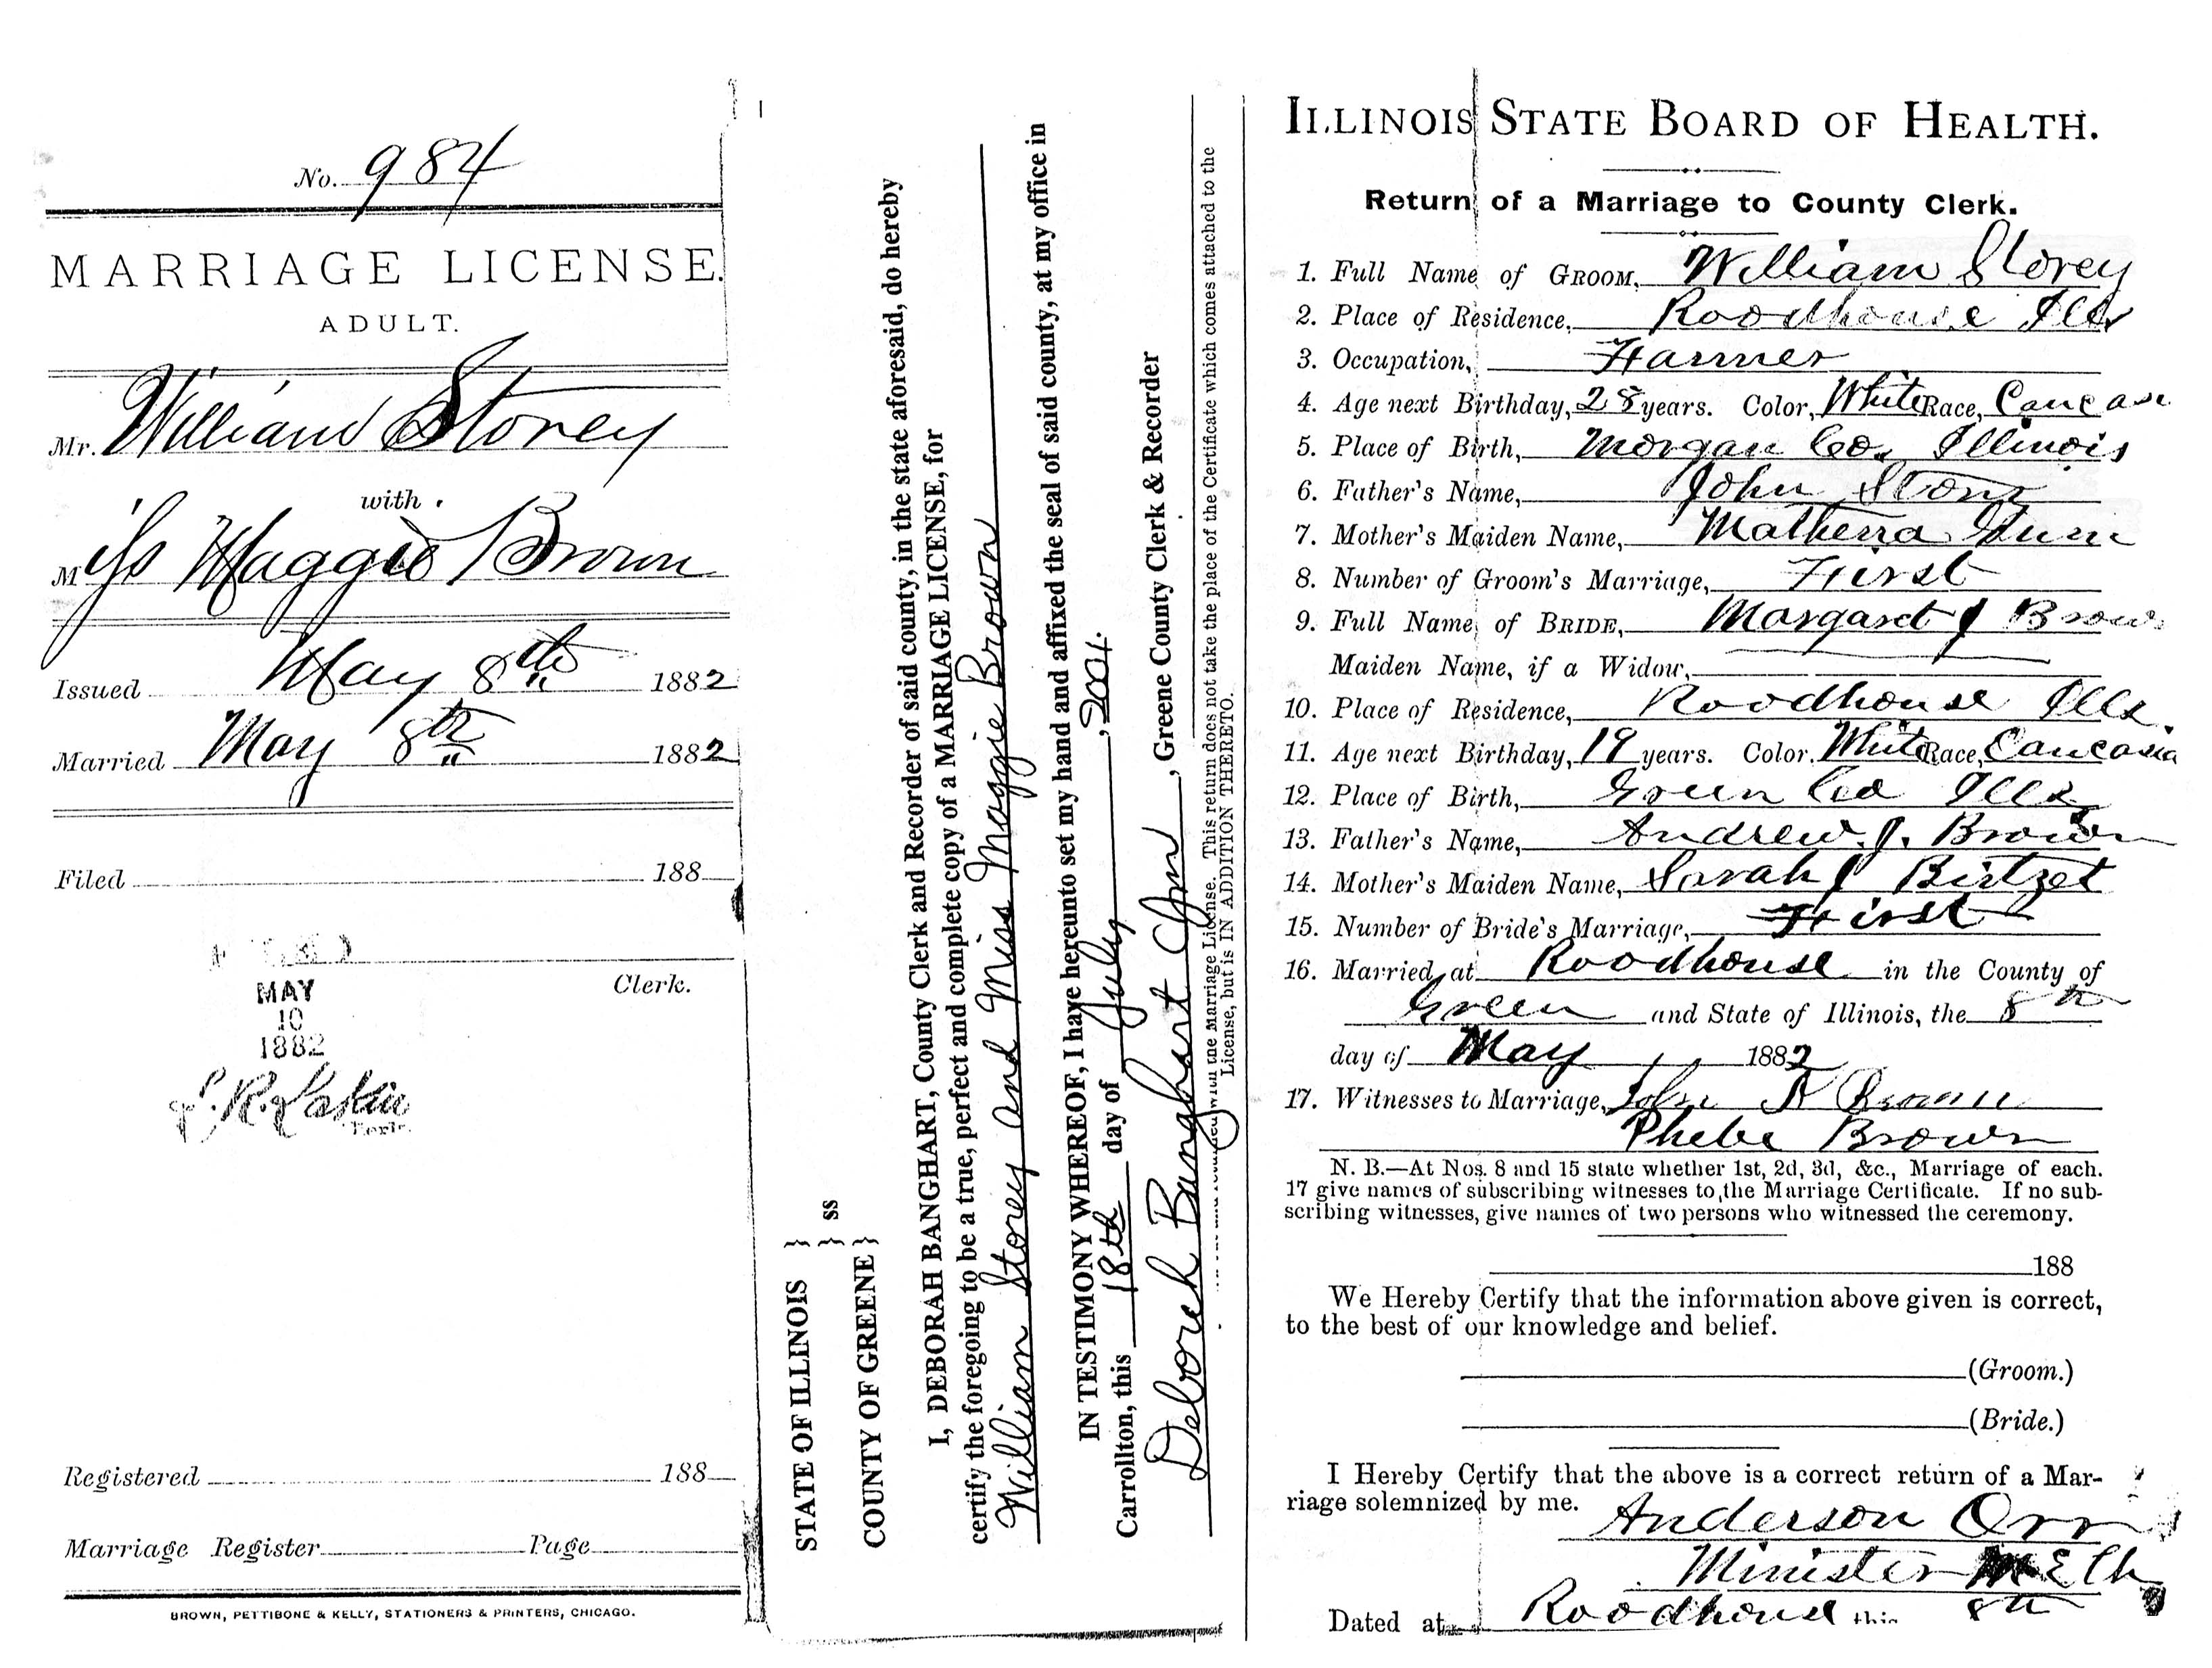 No. 984
MARRIAGE LICENSE.
ADULT.
Mr. William Storey
with
Miss Maggie Brown
Issued May 8th 1882
Married May 8th 1882
Filed 188
Clerk.
MAY
10
1882
Registered 188
Marriage Register Page
BROWN, PETTIBONE & KELLY, STATIONERS & PRINTERS, CHICAGO.
STATE OF ILLINOIS }
} ss
COUNTY OF GREENE }
I, DEBORAH BANGHART, County Clerk and Recorder of said county, in the state aforesaid, do hereby
certify the foregoing to be a true, perfect and complete copy of a MARRIAGE LICENSE, for
William Storey and Miss Maggie Brown
IN TESTIMONY WHEREOF, I have hereunto set my hand and affixed the seal of said county, at my office in
Carrollton, this 18th day of July, 2001.
Deborah Banghart, Greene County Clerk & Recorder
the Marriage License. This return does not take the place of the Certificate which comes attached to the
License, but is IN ADDITION THERETO.
ILLINOIS STATE BOARD OF HEALTH.
Return of a Marriage to County Clerk.
1. Full Name of GROOM, William Storey
2. Place of Residence, Roodhouse Ills
3. Occupation, Farmer
4. Age next Birthday, 28 years. Color, White Race, Caucasi
5. Place of Birth, Morgan Co, Illinois
6. Father's Name, John
7. Mother's Maiden Name,
8. Number of Groom's Marriage, First
9. Full Name of BRIDE, Margaret J Brown
Maiden Name, if a Widow,
10. Place of Residence, Roodhouse Ills.
11. Age next Birthday, 19 years. Color, White Race, Caucasia
12. Place of Birth, Green Co Ills
13. Father's Name, Andrew. J. Brown
14. Mother's Maiden Name, Sarah J Birtzet
15. Number of Bride's Marriage, First
16. Married at Roodhouse in the County of
Green and State of Illinois, the 8th
day of May 1882
17. Witnesses to Marriage, John Brown
Phebe Brown
N. B.—At Nos. 8 and 15 state whether 1st, 2d, 3d, &c., Marriage of each.
17 give names of subscribing witnesses to the Marriage Certificate. If no sub-
scribing witnesses, give names of two persons who witnessed the ceremony.
188
We Hereby Certify that the information above given is correct,
to the best of our knowledge and belief.
(Groom.)
(Bride.)
I Hereby Certify that the above is a correct return of a Mar-
riage solemnized by me.
Anderson Orr
Minister M E Ch
Dated at Roodhouse this 8th